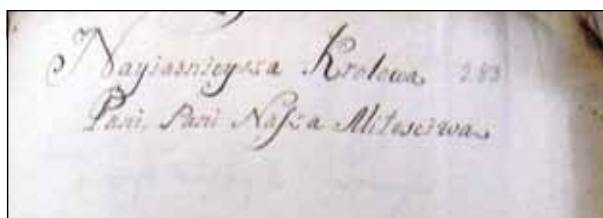 Nayiasnieysza Krolowa 283
Pani, Pani Nasza Miłosciwa